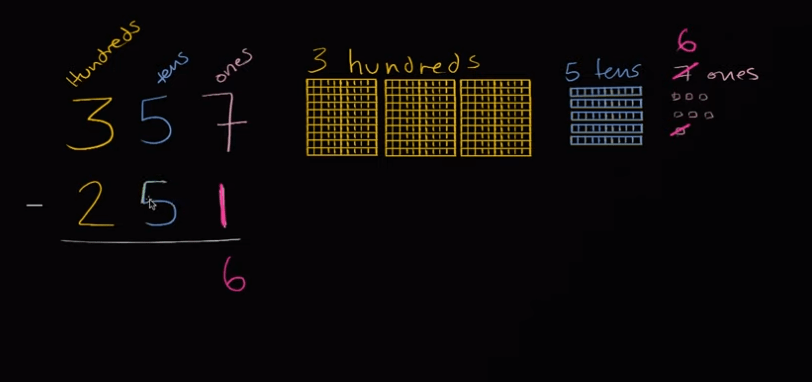 Hundreds tens ones
3 5 7
- 2 5 1
6
3 hundreds
5 tens
6
7 ones